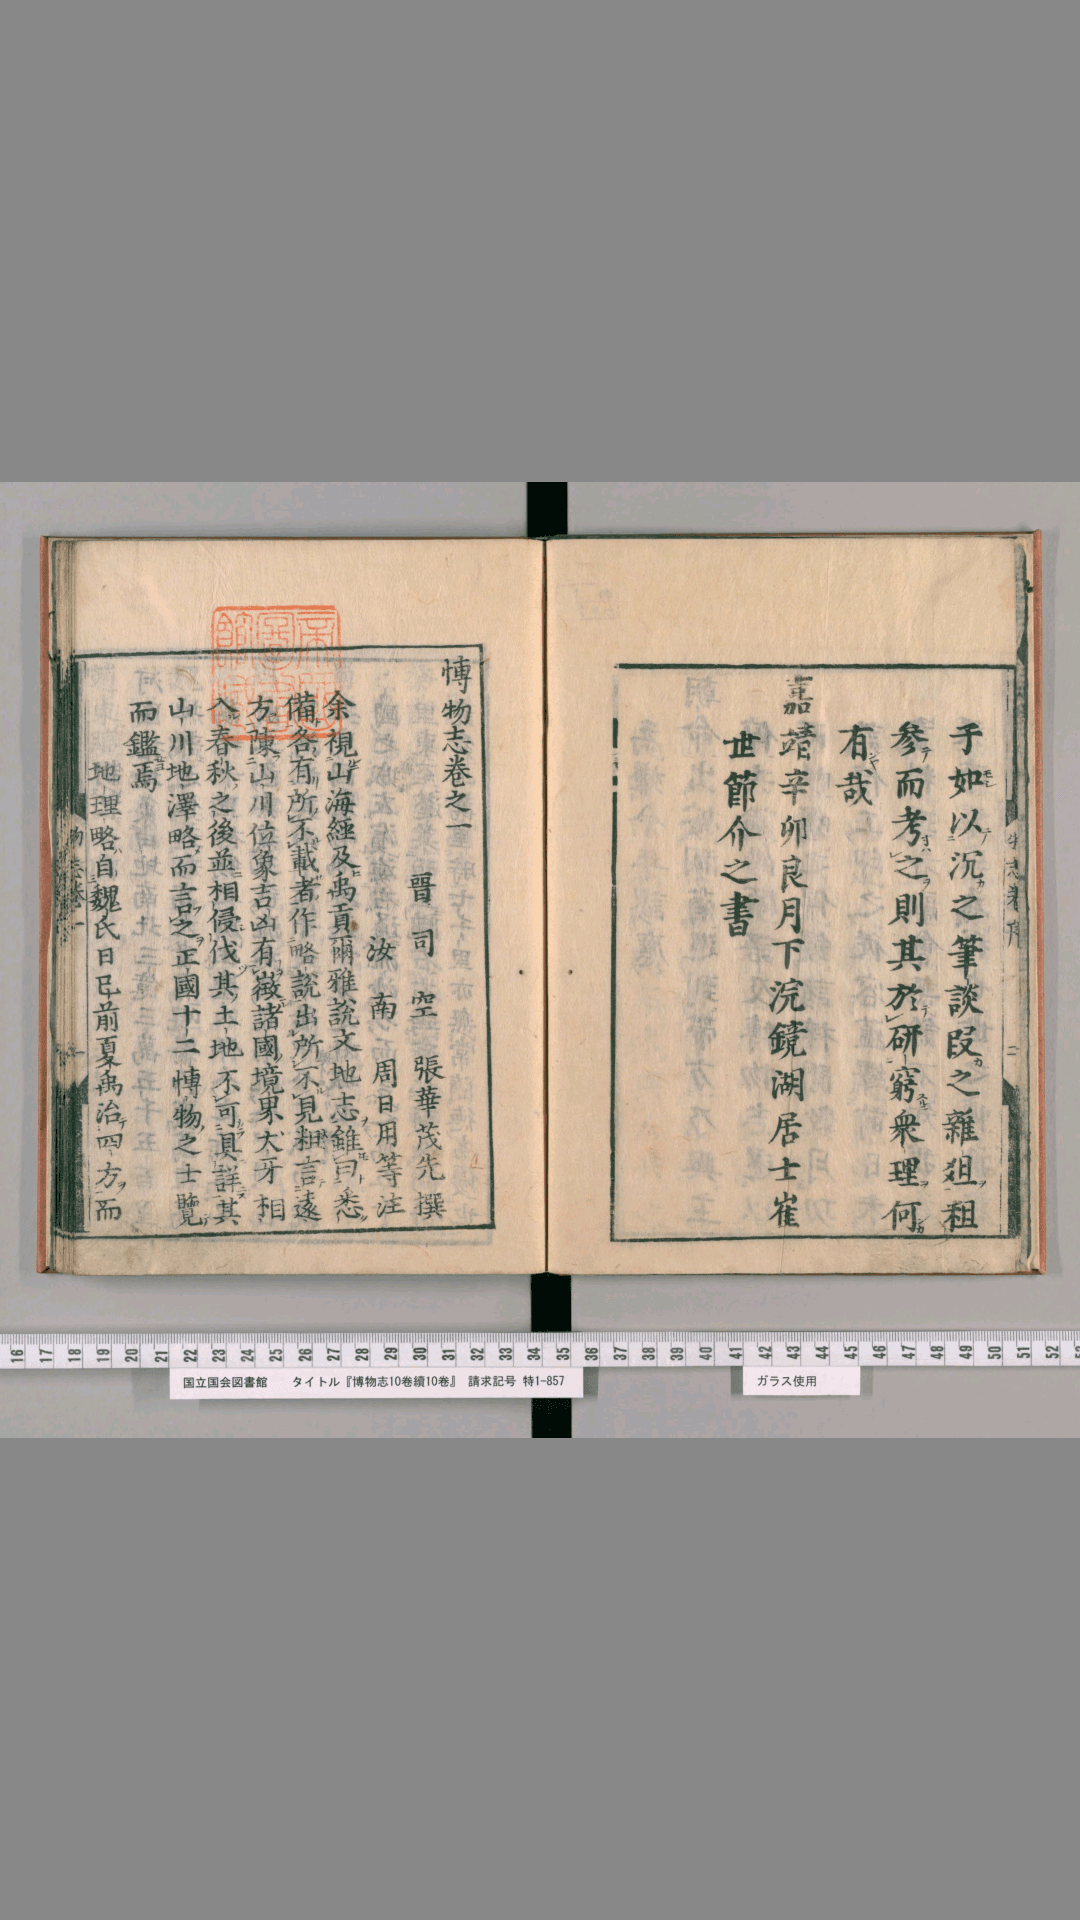 于如以沉之筆談段之雜爼租
參而考之則其於研窮衆理何
有哉
嘉靖辛卯良月下浣鏡湖居士崔
世節介之書
愽物志卷之一
晋司空張華茂先撰
汝南周日用等注
余視山海經及禹貢爾雅說文地志雖曰悉
備各有所不載者作略說出所不見粗言遠
方陳山川位象吉凶有徴諸國境界犬牙相
入春秋之後並相侵伐其土地不可具詳其
山川地澤略而言之正國十二愽物之士覽
而鑑焉
地理略自魏氏日已前夏禹治四方而
16 17 18 19 20 21 22 23 24 25 26 27 28 29 30 31 32 33 34 35 36 37 38 39 40 41 42 43 44 45 46 47 48 49 50 51 52
国立国会図書館 タイトル『博物志10巻續10巻』 請求記号 特1-857
ガラス使用